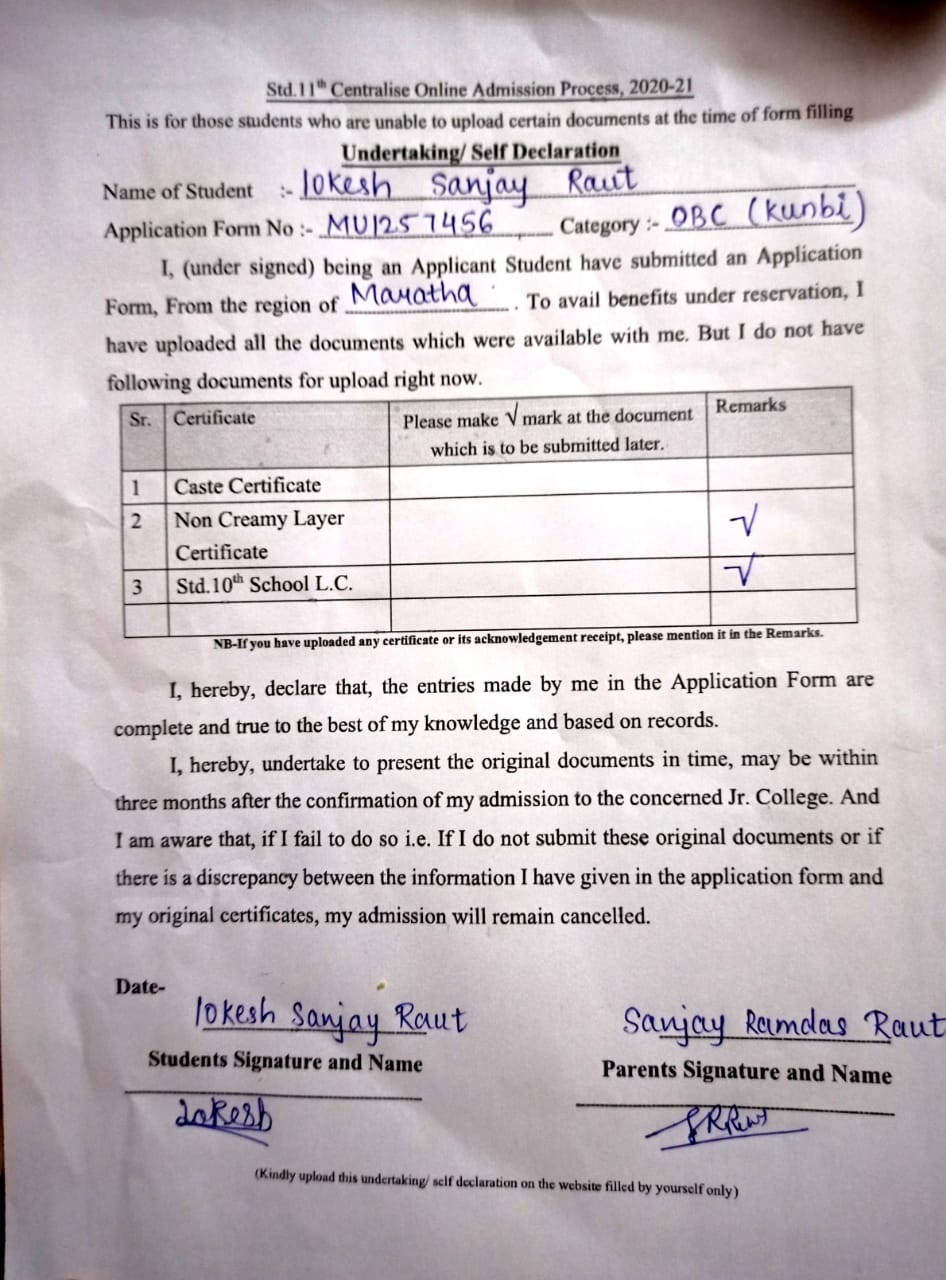 Std.11th Centralise Online Admission Process, 2020-21
This is for those students who are unable to upload certain documents at the time of form filling
Undertaking/ Self Declaration
Name of Student :- lokesh Sanjay Raut
Application Form No :- MU1257456 Category :- OBC (kunbi)
I, (under signed) being an Applicant Student have submitted an Application
Form, From the region of Maratha. To avail benefits under reservation, I
have uploaded all the documents which were available with me. But I do not have
following documents for upload right now.
Sr. Certificate Please make √ mark at the document Remarks
which is to be submitted later.
1 Caste Certificate
2 Non Creamy Layer √
Certificate
3 Std.10th School L.C. √
NB-If you have uploaded any certificate or its acknowledgement receipt, please mention it in the Remarks.
I, hereby, declare that, the entries made by me in the Application Form are
complete and true to the best of my knowledge and based on records.
I, hereby, undertake to present the original documents in time, may be within
three months after the confirmation of my admission to the concerned Jr. College. And
I am aware that, if I fail to do so i.e. If I do not submit these original documents or if
there is a discrepancy between the information I have given in the application form and
my original certificates, my admission will remain cancelled.
Date-
lokesh Sanjay Raut Sanjay Ramdas Raut
Students Signature and Name Parents Signature and Name
Lokesh
(Kindly upload this undertaking/ self declaration on the website filled by yourself only)